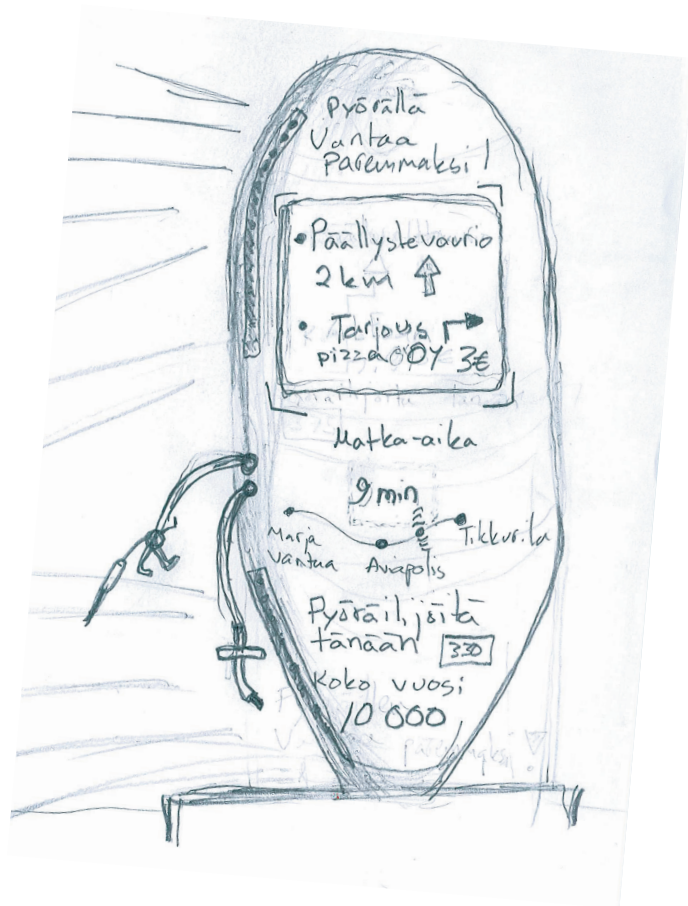 Pyörällä
Vantaa
Paremmaksi!
• Päällystevaurio
2 km
• Tarjous
pizza OY 3€
Matka-aika
9 min
Marja
Vantaa
Aviapolis
Tikkurila
Pyöräilijöitä
tänään 330
Koko vuosi
10 000